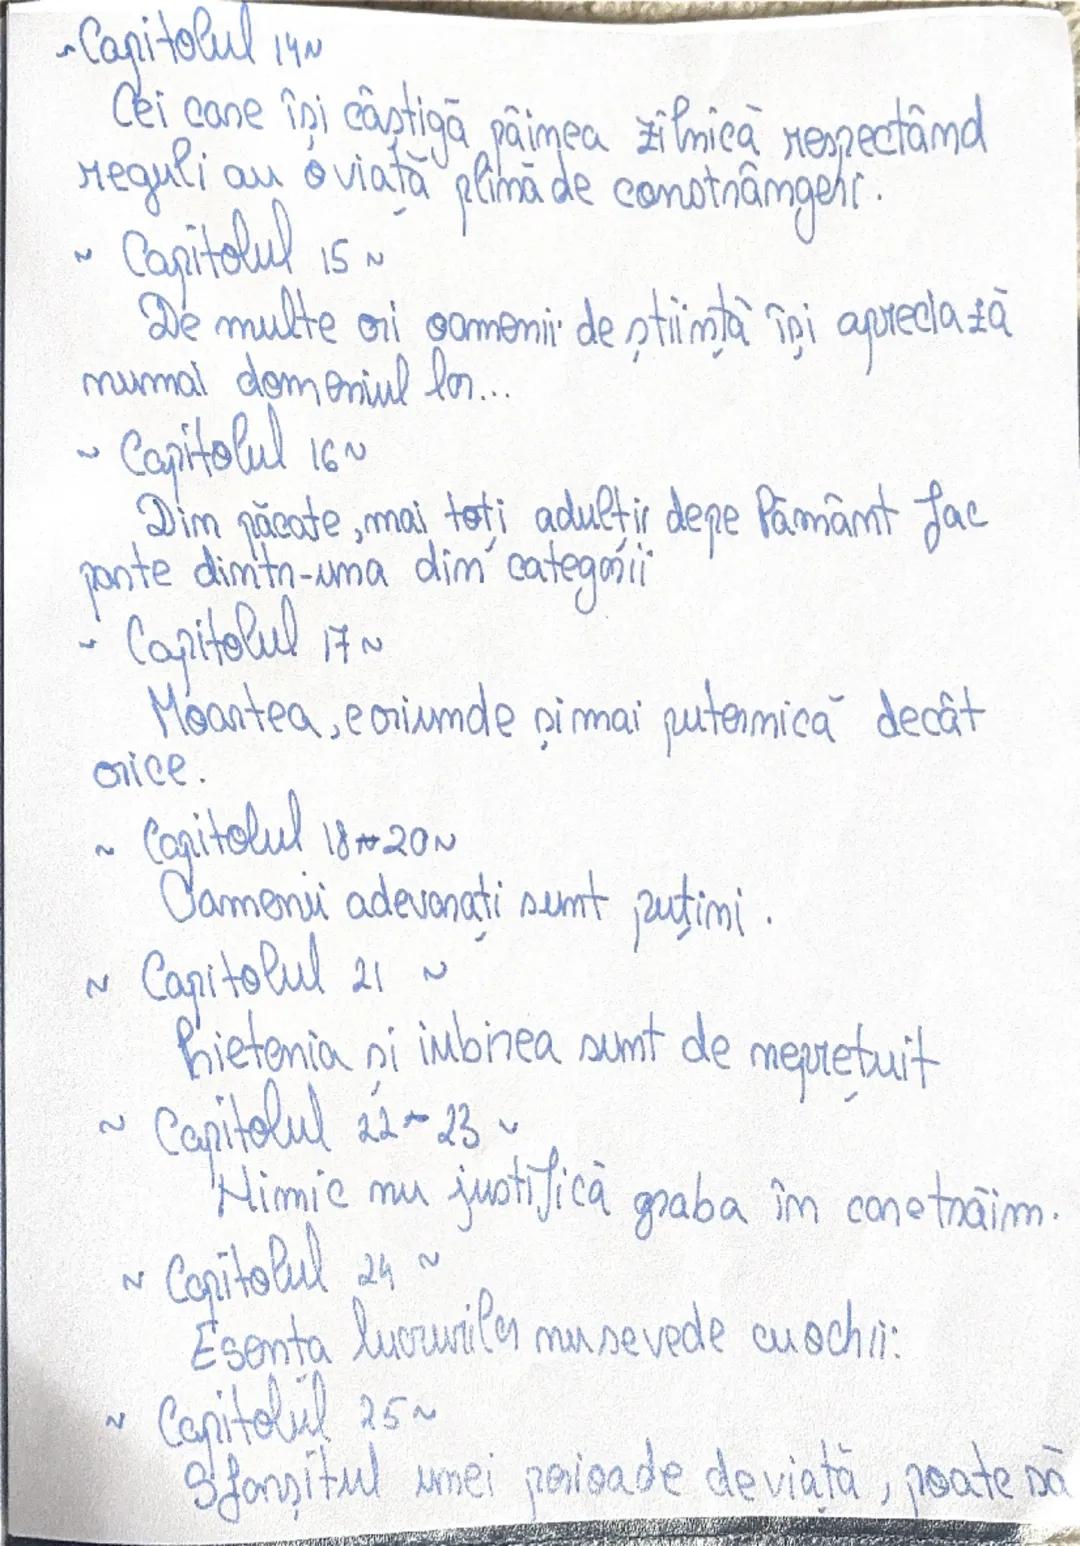 ~ Capitolul 14 ~
Cei care își câștigă pâinea zilnică respectând
reguli au o viață plină de constrângeri.
~ Capitolul 15 ~
De multe ori oamenii de știință își apreciază
numai domeniul lor...
~ Capitolul 16 ~
Din păcate, mai toți adulții de pe Pământ fac
parte dintr-una din categorii
~ Capitolul 17 ~
Moartea, e oriunde și mai puternică decât
orice.
~ Capitolul 18 ~ 20 ~
Oamenii adevarați sunt puțini.
~ Capitolul 21 ~
Prietenia și iubirea sunt de neprețuit
~ Capitolul 22 ~ 23 ~
Nimic nu justifică graba în care trăim.
~ Capitolul 24 ~
Esența lucrurilor nu se vede cu ochii:
~ Capitolul 25 ~
Sfarșitul unei perioade de viață, poate să